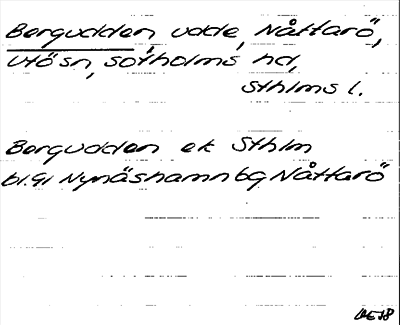 Bergudden, udde, Nåttarö,
Utö sn, Sotholms hd,
Sthlms l.
Bergudden ek Sthlm
bl.91 Nynäshamn bg Nåttarö